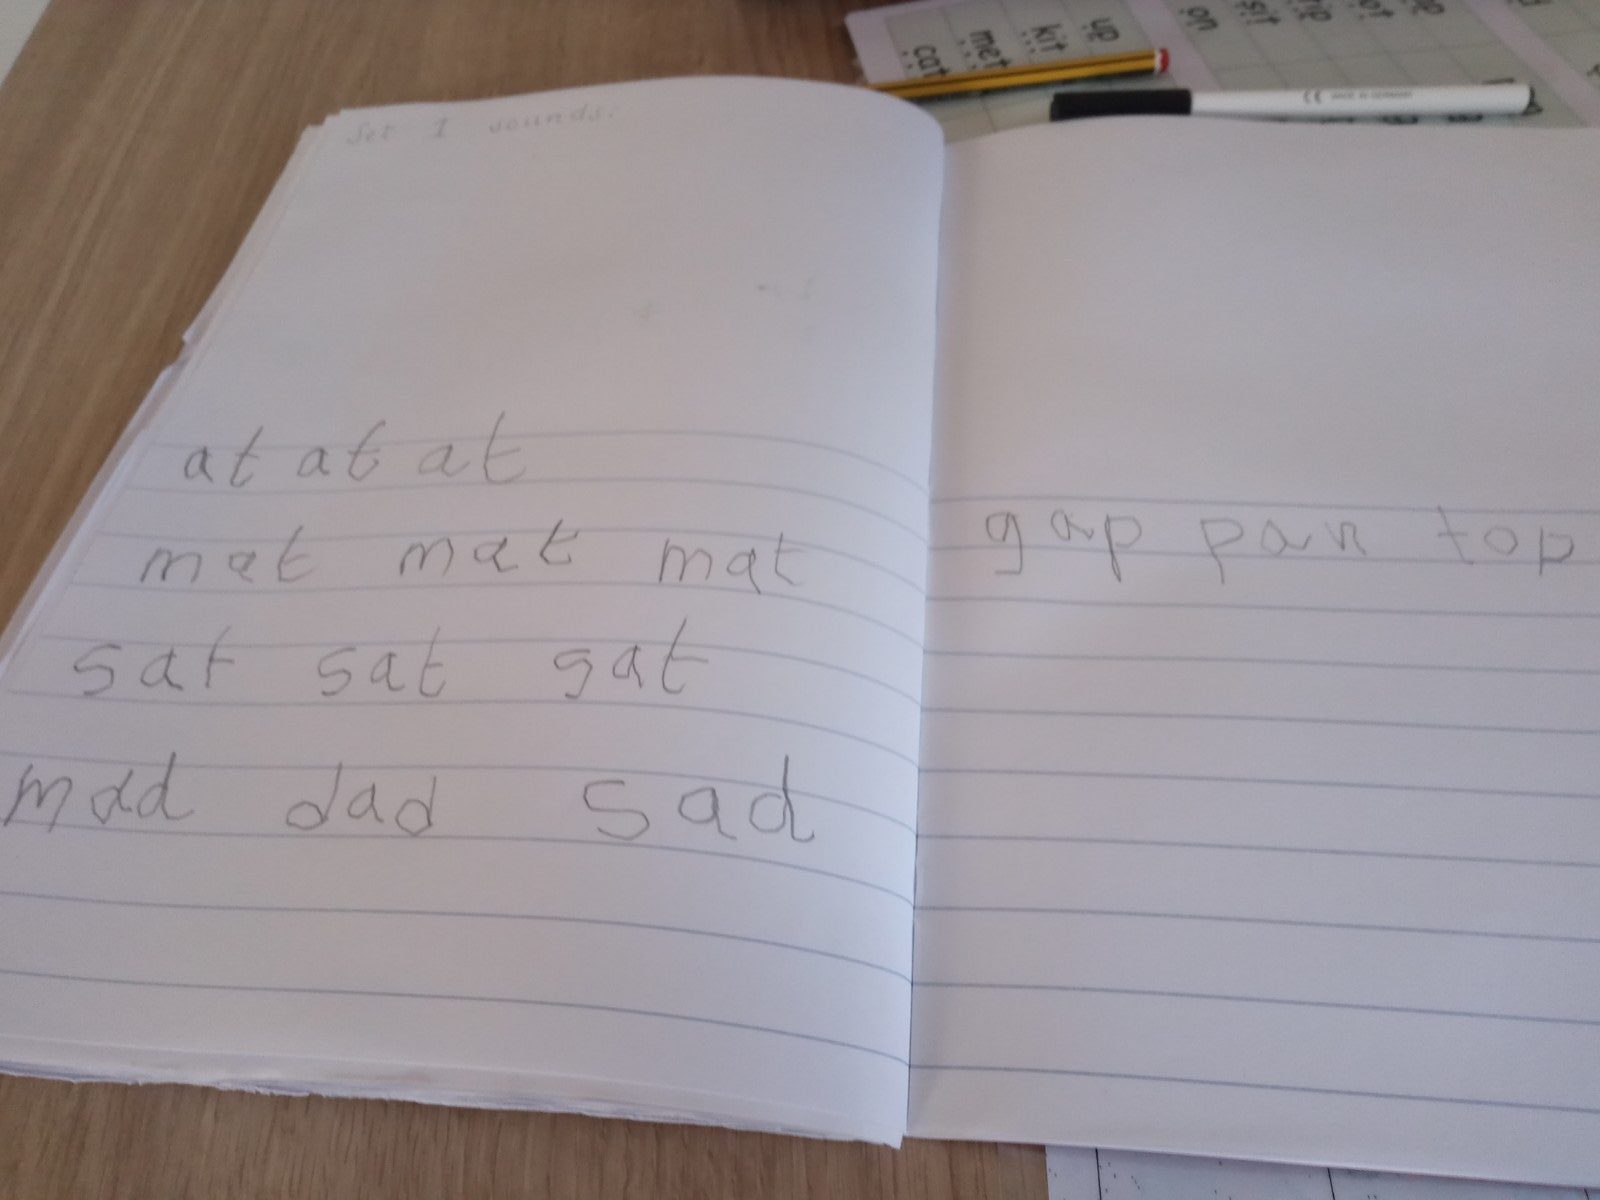 Set 1 sounds.
at at at
mat mat mat
sat sat sat
mad dad sad
gap pan top
up
kit
met
cat
on
sit